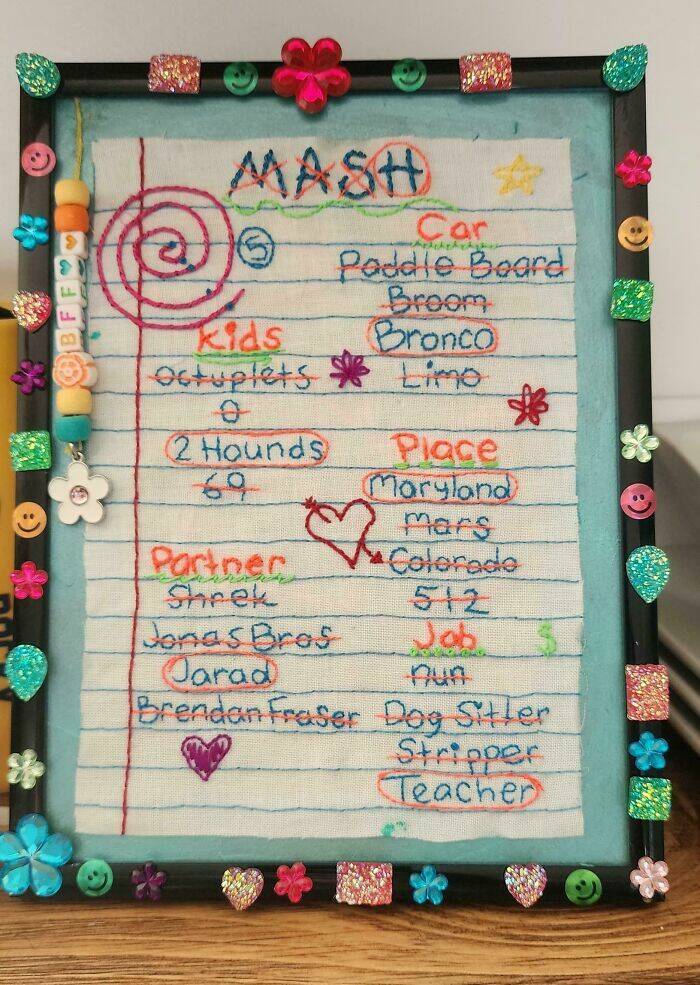 MASH
5
BFF
Kids
Octuplets
0
2 Hounds
69
Partner
Shrek
Jonas Bros
Jarad
Brendan Fraser
Car
Paddle Board
Broom
Bronco
Limo
Place
Maryland
Mars
Colorado
512
Job
$
nun
Dog Sitter
Stripper
Teacher